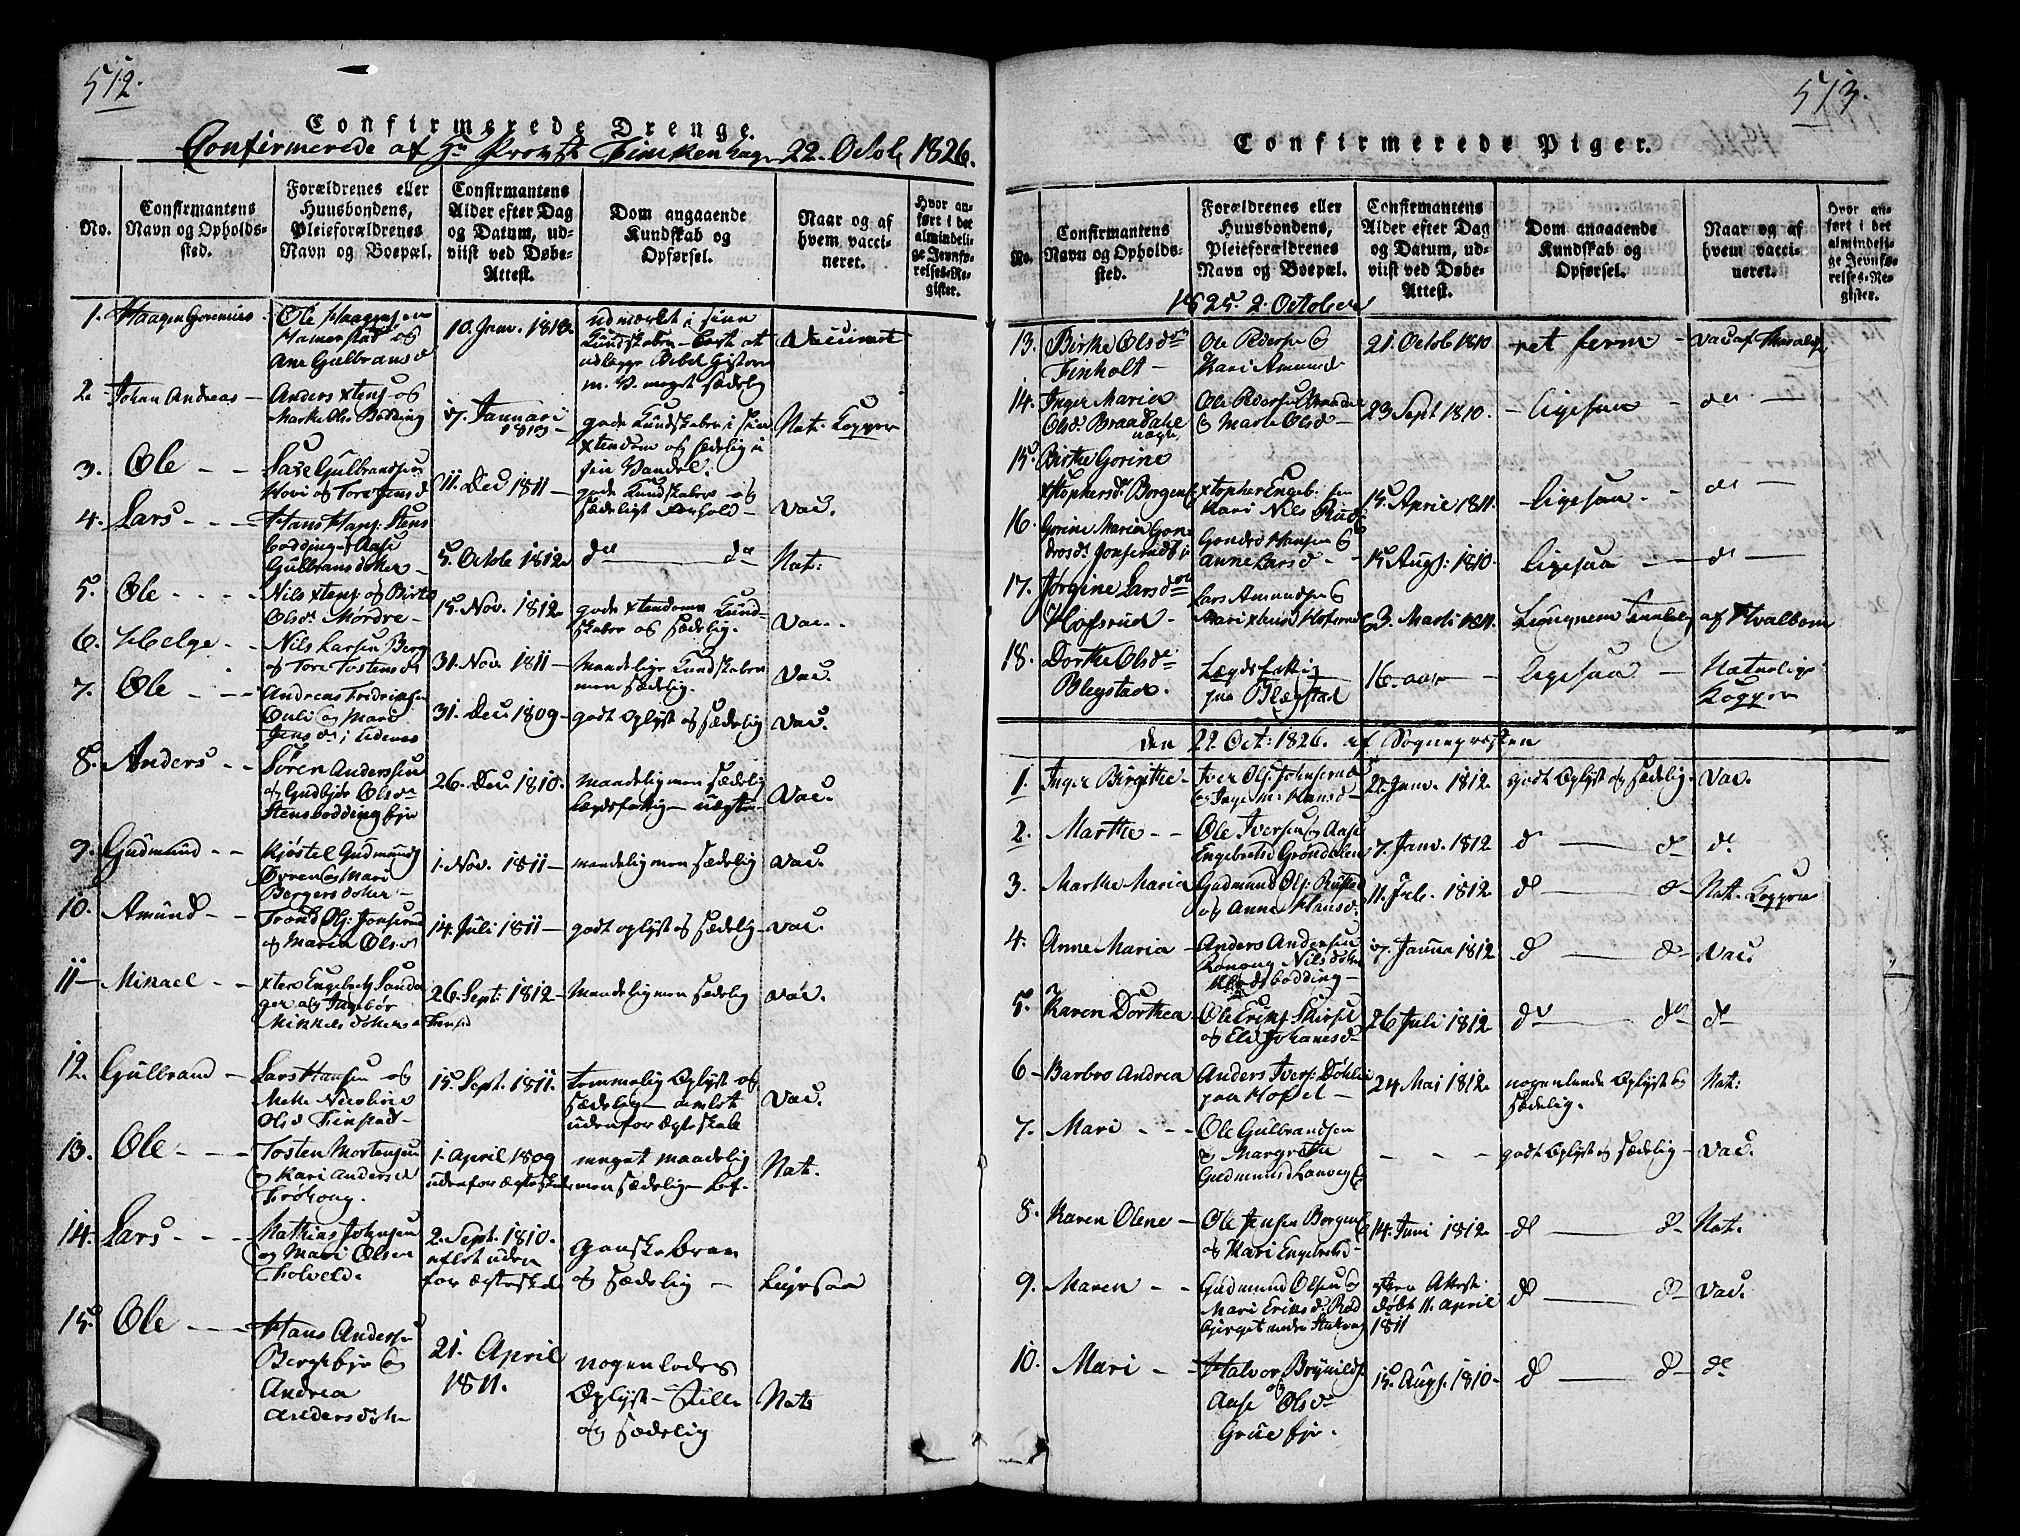 512.
Confirmerede Drenge.
Confirmerede af Hr Provst Finckenhagen 22. Octob 1826.
No.
Confirmantens
Navn og Opholds-
sted.
Forældrenes eller
Huusbondens,
Pleieforældrenes
Navn og Boepæl.
Confirmantens
Alder efter Dag
og Datum, ud-
viist ved Døbe-
Attest.
Dom angaaende
Kundskab og
Opførsel.
Naar og af
hvem vacci-
neret.
Hvor an-
ført i det
almindeli-
ge Jevnfø-
relses-Re-
gister.
1. Haagen
Ole Haagensen
Hamerstad og
Ane Gulbransd
10. Janv. 1812
udmærket i sine
Kundskaber
m. V. meget sædelig
Vaccineret
2. Johan Andreas
Anders Xtens og
Marthe Ols Bodding
7. Januari
gode Kundskaber i sin
Xtendom og sædelig i
sin Vandel.
Nat: Kopper
3. Ole
Gulbrandsen
Hovi og Tore Jensd
11. Dec 1811
gode Kundskaber og
sædeligt Forhold
Vac.
4. Lars
Hans Hans: Stens
bodding og Aase
Gulbransdotter
5. Octob 1812
do do
Nat:
5. Ole
Nils Xtens og Birte
Olsd. Mørdre
15. Nov. 1812
gode Xtendoms Kund-
skaber og sædelig.
Vac.
6. Helge
Nils Larsen Berg
og Tore Tostensd
31. Nov. 1811
Maadelige Kundskaber
men sædelig.
Vac.
7. Ole
Andreas Fredriksen
og Mari
Jensd i Eidsvos
31. Dec 1809
godt oplyst og sædelig
Vac.
8. Anders
Søren Anderssen
og Gudbjør Olsdr
Stensboddingeje
26. Dec 1810.
maadelig men sædelig
Lægdsfattig uægte
Vac.
9. Gudmund
Kjøstel Gudmunds
Øvren og Mari
Bergersdotter
1. Nov. 1811
maadelig men sædelig
Vac.
10. Amund
Trond Ols: Jonsrud
og Maria Olsd
14. Juli 1811
godt oplyst og sædelig
Vac.
11 Mikael
Xter Engebret Sanda
ger og Ingebør
Mikkelsdotter
26. Sept: 1812
Maadelig men sædelig
Vac.
12. Gulbrand
Lars Hansen og
Mette Nicoline
Olsd Finstad
15. Sept. 1811.
temmelig oplyst og
sædelig avlet
udenfor Ægteskab
Vac.
13. Ole
Tosten Mortensen
og Kari Andersd
1. April 1809
udenfor ægteskab
meget maadelig
men sædelig
Nat.
14. Lars
Mathias Johnsen
og Mari Olsen
2. Sept. 1810.
aflet uden
for ægteskab
Ganske brav
og sædelig
Ligesaa
15. Ole
Hans Andersen
Bergseje og
Andrea
Andersdotr
21. April
1811.
nogenledes
Oplyst Stille
og sædelig
Nat
513.
Confirmerede Piger.
No.
Confirmantens
Navn og Opholds-
sted.
Forældrenes eller
Huusbondens,
Pleieforældrenes
Navn og Boepæl.
Confirmantens
Alder efter Dag
og Datum, ud-
viist ved Døbe-
Attest.
Dom angaaende
Kundskab og
Opførsel.
Naar og af
hvem vacci-
neret.
Hvor an-
ført i det
almindeli-
ge Jevnfø-
relses-Re-
gister.
1825. 2. October
13. Birthe Olsdr
Finholt
Ole Pedersen og
Kari Amundsd
21. Octob 1810
ret ferm
Vac af
14. Inger Maria
Olsd. Brandahl
uægte
Ole Pedersen
og Marte Olsd
23 Sept 1810.
ligesaa
do
15. Birthe Gorine
Xstophersdr Borgen
Xtopher Engeb: sen
Kari Nils Rud
15. April 1811.
ligesaa
do
16. Gorine Maria
Hansen og
Anne Larsd
15 Aug: 1810.
ligesaa
do
17. Jørgine Larsdr
Hofsrud
Lars Amundsen og
23. Marti 1811.
af Hvalbom
18. Dorthe Olsd
Blegstad.
Lægdsfattig
paa Blegstad
16. aar
ligesaa
Naturlige
Kopper
den 22. Oct: 1826. af Sognepresten
1. Inger Birgithe
Iver Ols: Johnsrud
og Inge M. Hansd
21. Janv. 1812
godt oplyst og sædelig
Vac.
2. Marthe
Ole Iversen og Aase
Engebretsd Grøndalen
7. Janv. 1812
do do
do
3. Marthe Maria
Gudmund Ols: Rustad
og Anne Hansd.
11. Feb. 1812
do do
Nat. Kopper
4. Anne Maria
Anders Andersen
Rønnoug Nilsdotter
bodding
7. Janua 1812
do do
Vac.
5. Karen Dorthea
Ole Eriks Skirfst
og Eli Johanesd
26 Juli 1812
do do
do
6 Barbro Andrea
Anders Ivers: Døhlie
paa Hofsel
24 Mai 1812
nogenlunde oplyst og
sædelig.
Nat:
7. Mari
Ole Gulbrandsen
og Margrethe
Gudmunds
godt oplyst og sædelig
Vac.
8. Karen Olene
Ole Jensen Borgen
og Kari Engebretsd
14. Juni 1812
do do
Nat.
9. Maren
Gudmund Olsen og
Mari Eriksd: Rød
bjerget under
uden Attest
født 11. April
1811
do do
Vac.
10. Mari
Halvor Brynilds
og
Aase Olsdr
Grue eje.
15. Aug. 1810
do do
do